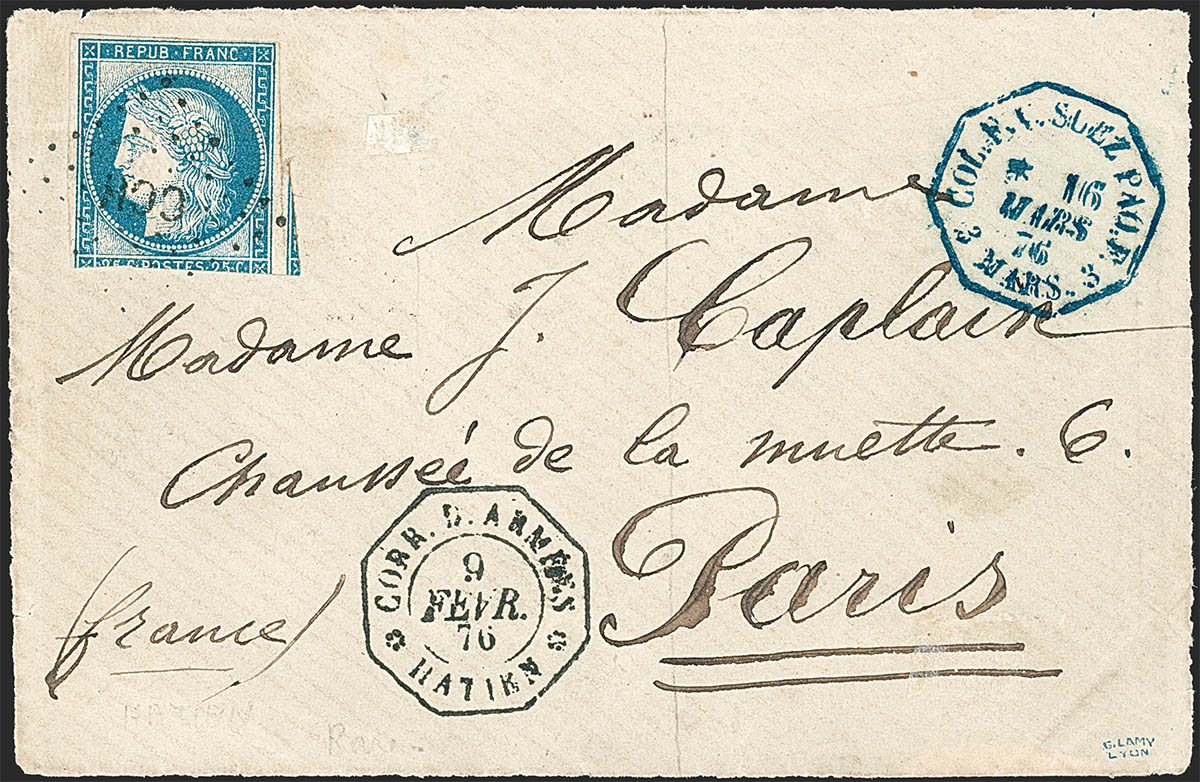 REPUB. FRANC.
CCH
25 C. POSTES. 25 C.
COL. F. V. SUEZ PAQ. F. 3
16
MARS
76
MARS.
Madame
Madame J. Caplain
Chaussée de la muette. 6.
Paris
(france)
CORR. D. ARMEES
9
FEVR.
76
HATIEN
HATIEN
Rare.
G. LAMY
LYON